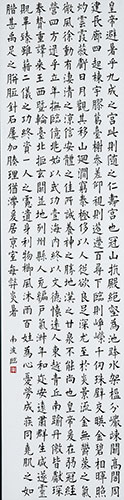 皇帝避暑乎九成之宮此則隨之仁壽宮也冠山抗殿絕壑為池跨水架楹分巖竦闕高閣周
建長廊四起棟宇膠葛臺榭參差仰視則迢遰百尋下臨則崢嶸千仞珠璧交暎金碧相暉照
灼雲霞蔽虧日月觀其移山迴澗窮泰極侈以人從欲良足深尤至於炎景流金無鬱蒸之氣
微風徐動有淒清之涼信安體之佳所誠養神之勝地漢之甘泉不能尚也皇帝爰在弱冠經
營四方逮乎立年撫臨億兆始以武功壹海內終以文德懷遠人東越青丘南踰丹徼皆獻琛
奉贄重譯來王西暨輪臺北拒玄闕並地列州縣人充編戶氣淑年和迩安遠肅群生咸遂靈
貺畢臻雖藉二儀之功終資一人之慮遺身利物櫛風沐雨百姓為心憂勞成疾同堯肌之如
腊甚禹足之胼胝針石屢加腠理猶滯爰居京室每弊炎暑
南波臨